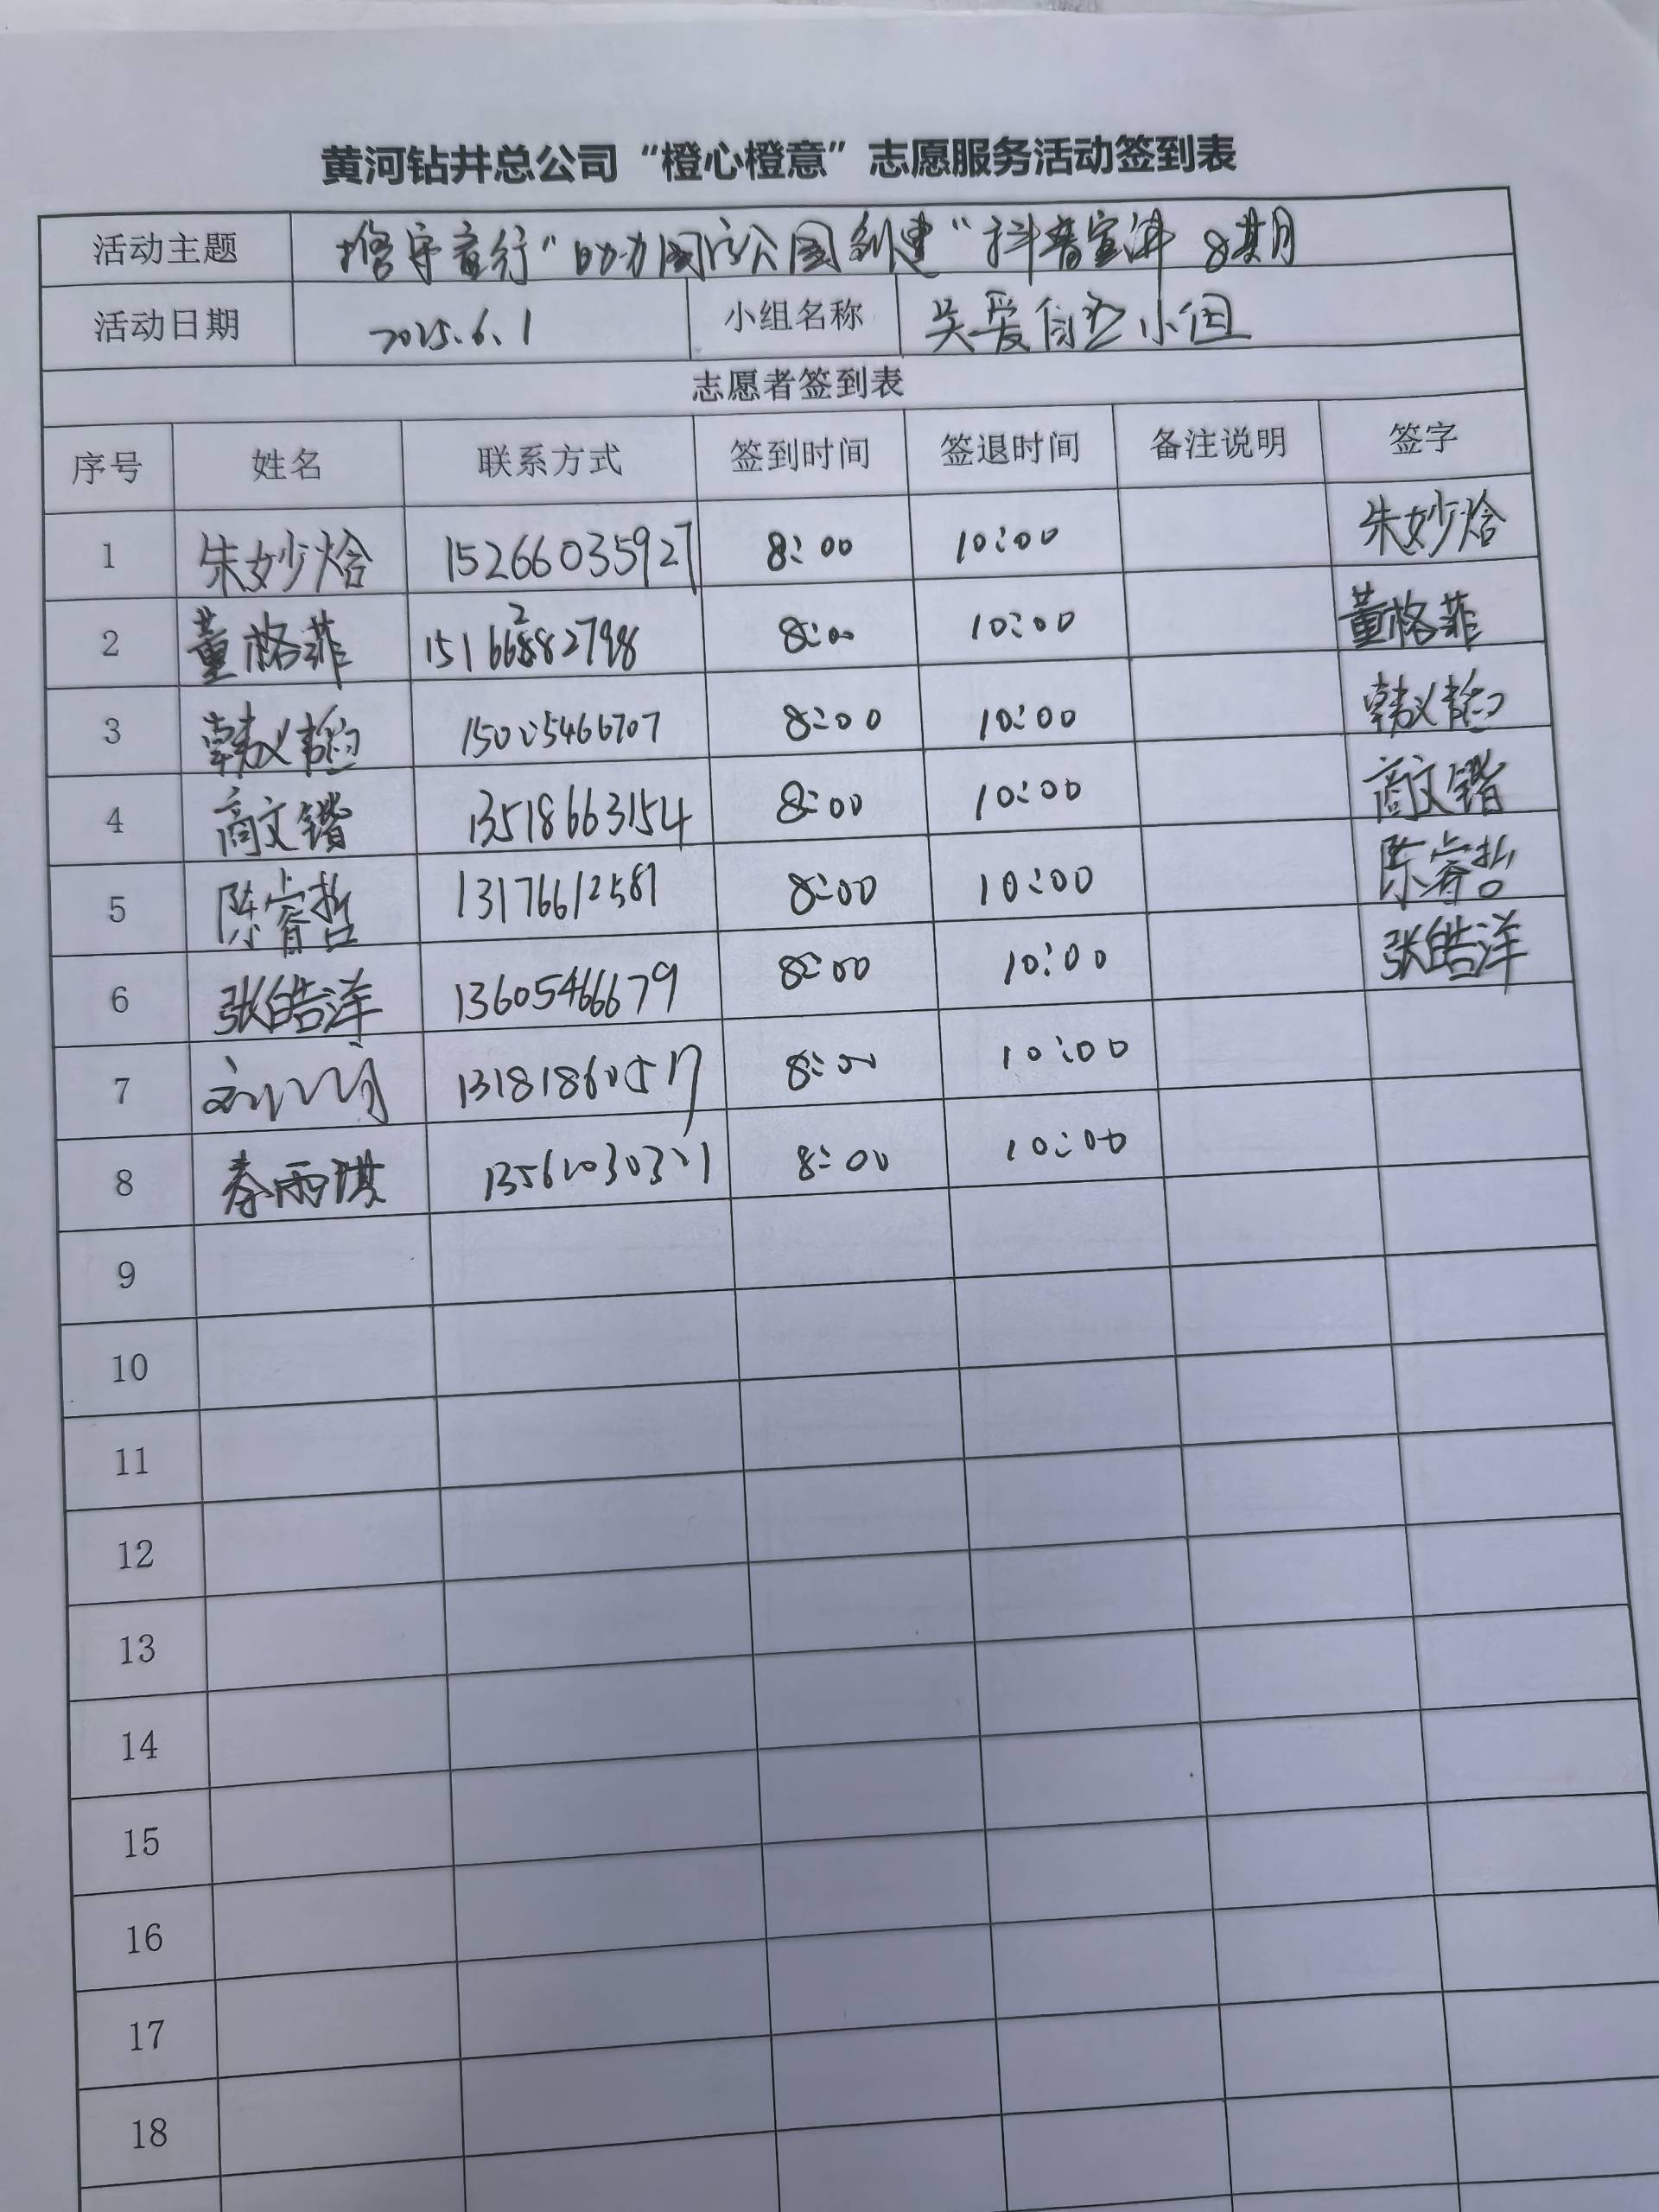 黄河钻井总公司“橙心橙意”志愿服务活动签到表
活动主题 行“助力国家公园创建”抖音宣讲 8期
活动日期 2025.6.1 小组名称 关爱自立小组
志愿者签到表
序号 姓名 联系方式 签到时间 签退时间 备注说明 签字
1 朱妙焓 15266035927 8:00 10:00 朱妙焓
2 董格菲 8:00 10:00 董格菲
3 韩义 15005466707 8:00 10:00 韩义
4 商文锴 13518663154 8:00 10:00 商文锴
5 陈睿哲 13176612581 8:00 10:00 陈睿哲
6 张皓洋 13605466679 8:00 10:00 张皓洋
7 8:00 10:00
8 秦雨琪 8:00 10:00
9
10
11
12
13
14
15
16
17
18